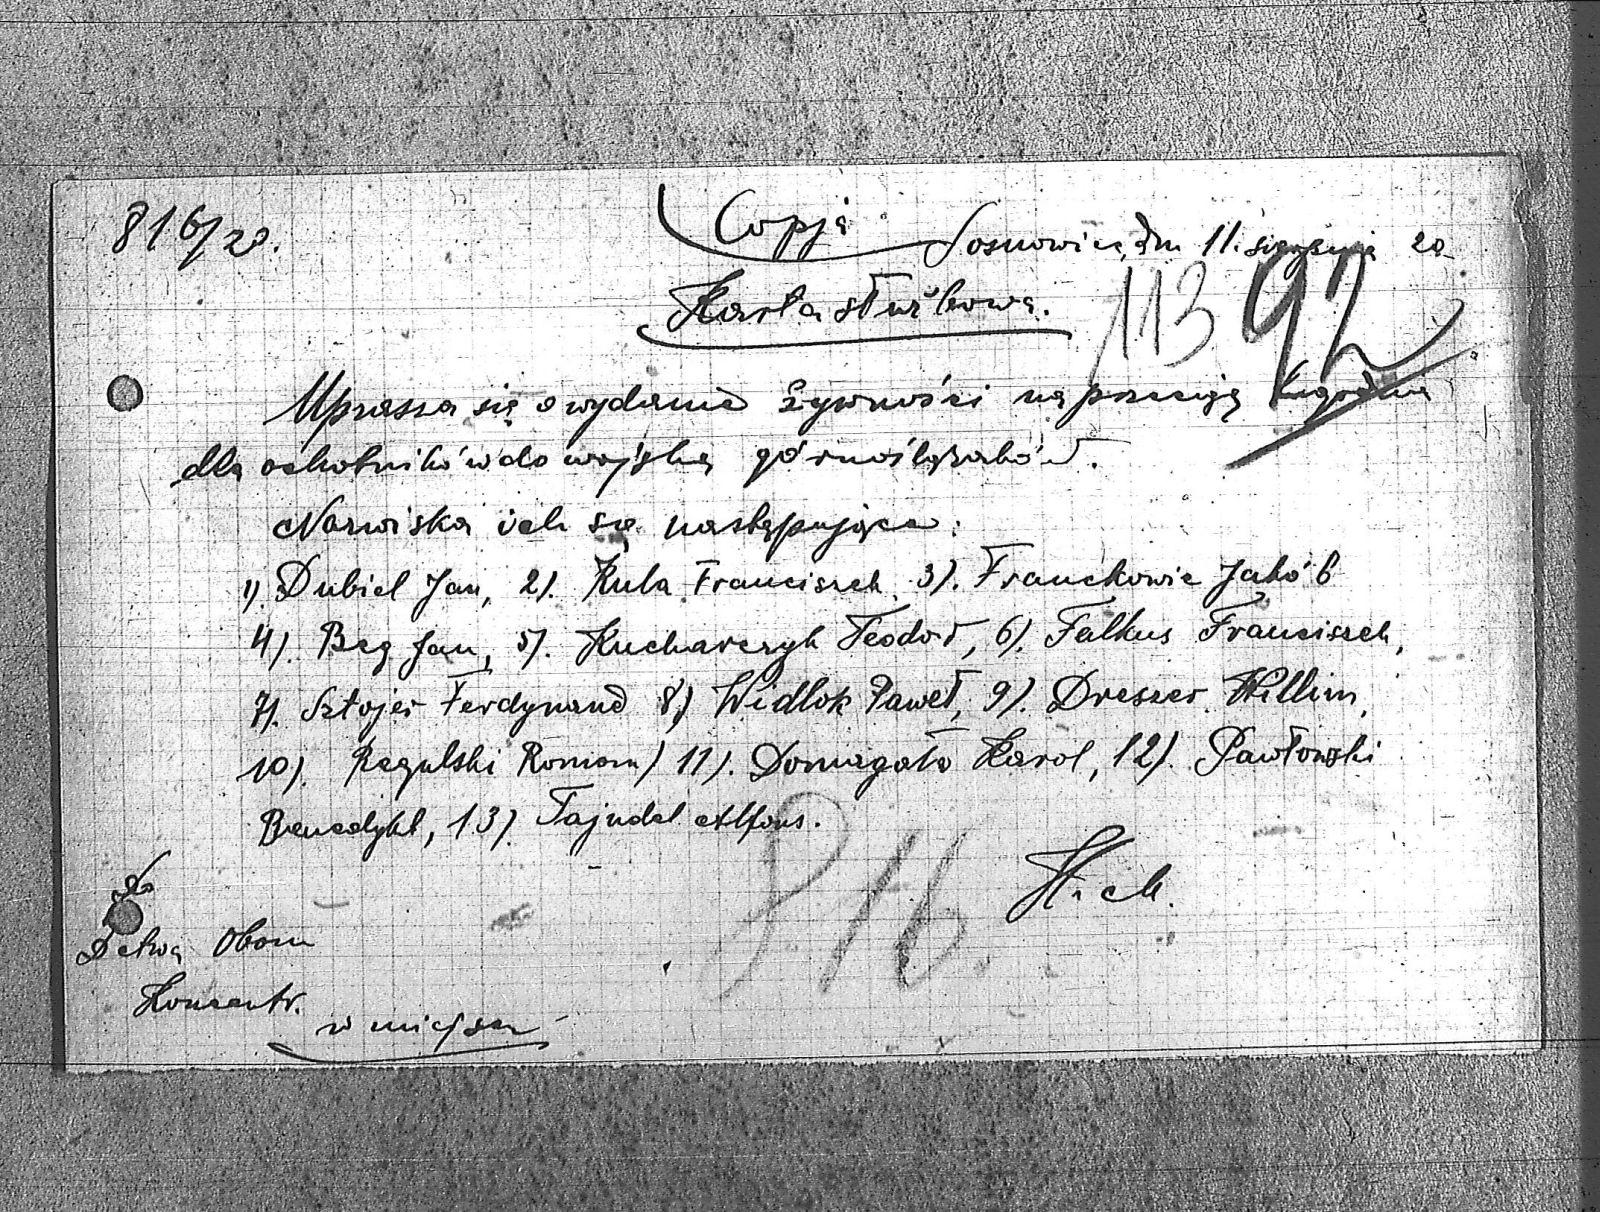 816/20.
Copja
Sosnowice, dn 11. sierpnia 20
Karta służbowa.
113 92
Uprasza się o wydanie żywności na przeciąg tygodnia
dla ochotników do wojska górnoślązaków.
Nazwiska ich są następujące:
1). Dubiel Jan, 2). Kula Franciszek, 3). Franckowic Jakób
4). Beg Jan, 5). Kucharczyk Teodor, 6). Falkus Franciszek,
7). Sztojer Ferdynand 8) Widlok Paweł, 9). Dreszer Willim,
10). Regulski Roman) 11). Domagała Karol, 12). Pawłowski
Benedykt, 13). Fajndel Alfons.
816.
Do
Dctwa Obozu
Koncentr.
w miejscu